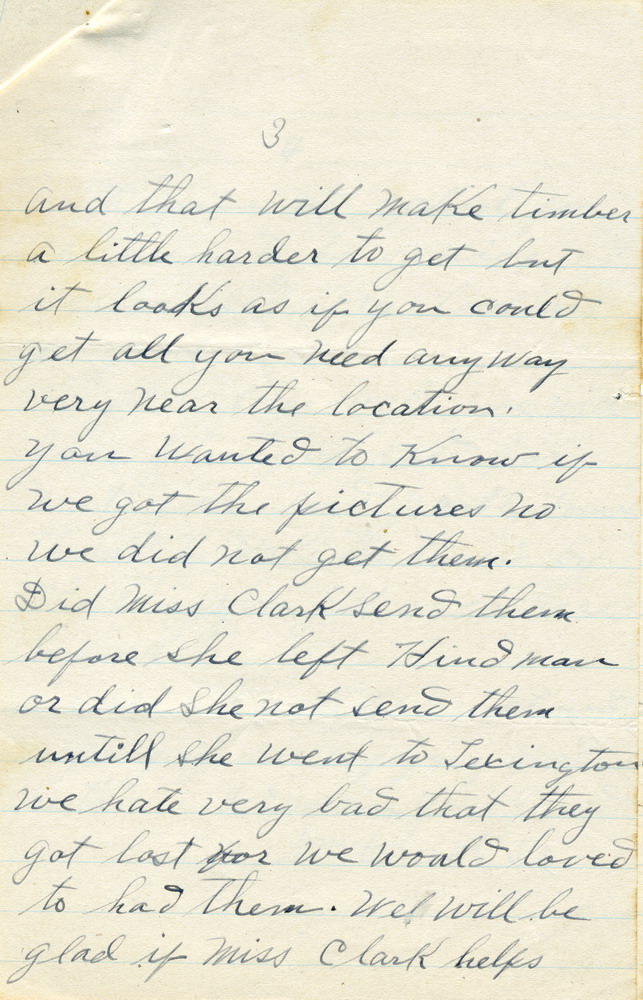 3
and that will make timber
a little harder to get but
it looks as if you could
get all you need anyway
very near the location.
you wanted to Know if
we got the pictures no
we did not get them.
Did Miss Clark send them
before she left Hindman
or did she not send them
untill she went to Lexington
we hate very bad that they
got lost for we would loved
to had them. We will be
glad if Miss Clark helps